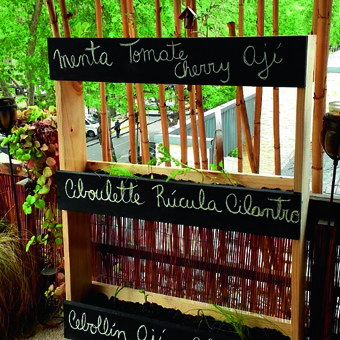 menta Tomate Cherry Ají
Ciboulette Rúcula Cilantro
Cebollín Ají